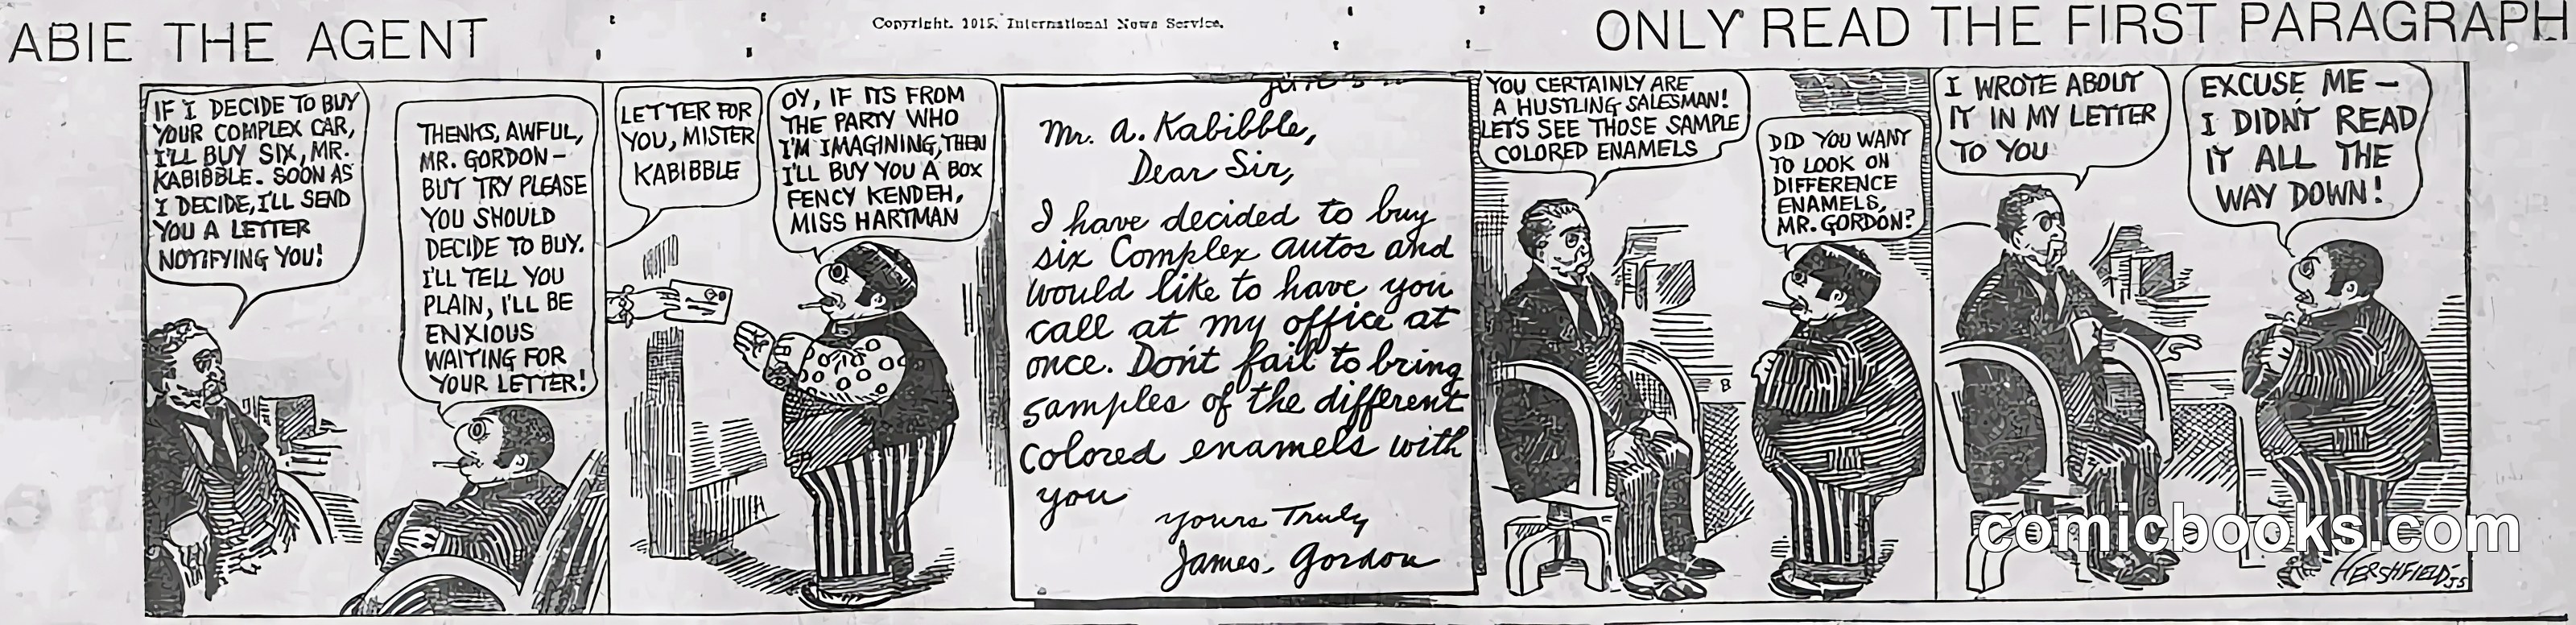 ABIE THE AGENT
Copyright, 1915, International News Service.
ONLY READ THE FIRST PARAGRAPH
IF I DECIDE TO BUY
YOUR COMPLEX CAR,
I'LL BUY SIX, MR.
KABIBBLE. SOON AS
I DECIDE, I'LL SEND
YOU A LETTER
NOTIFYING YOU!
THENKS, AWFUL,
MR. GORDON—
BUT TRY PLEASE
YOU SHOULD
DECIDE TO BUY.
I'LL TELL YOU
PLAIN, I'LL BE
ENXIOUS
WAITING FOR
YOUR LETTER!
LETTER FOR
YOU, MISTER
KABIBBLE
OY, IF ITS FROM
THE PARTY WHO
I'M IMAGINING, THEN
I'LL BUY YOU A BOX
FENCY KENDEH,
MISS HARTMAN
Mr. A. Kabibble,
Dear Sir,
I have decided to buy
six Complex autos and
would like to have you
call at my office at
once. Don't fail to bring
samples of the different
colored enamels with
you
Yours Truly
James. Gordon
YOU CERTAINLY ARE
A HUSTLING SALESMAN!
LET'S SEE THOSE SAMPLE
COLORED ENAMELS
DID YOU WANT
TO LOOK ON
DIFFERENCE
ENAMELS,
MR. GORDON?
I WROTE ABOUT
IT IN MY LETTER
TO YOU
EXCUSE ME —
I DIDN'T READ
IT ALL THE
WAY DOWN!
comicbooks.com
HERSHFIELD